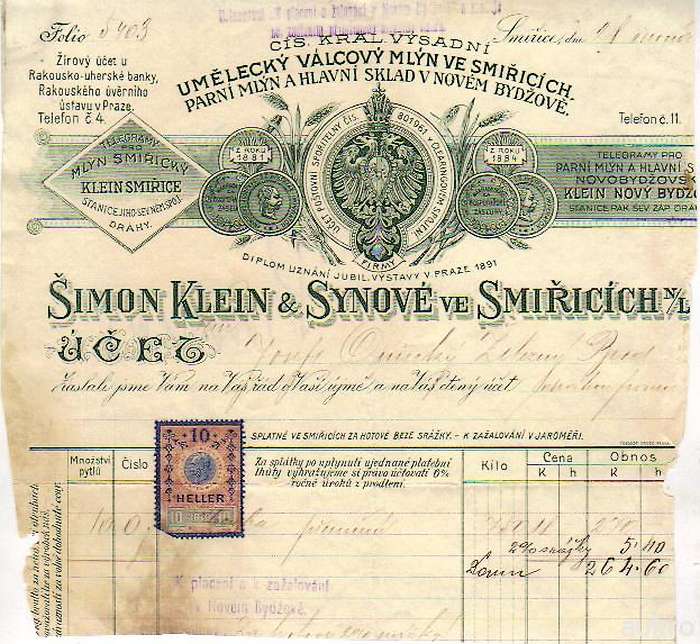 Folio 5403
Smiřice, dne
Žirový účet u
Rakousko-uherské banky,
Rakouského úvěrního
ústavu v Praze.
Telefon č 4.
CÍS. KRÁL. VÝSADNÍ
UMĚLECKÝ VÁLCOVÝ MLÝN VE SMIŘICÍCH.
PARNÍ MLÝN A HLAVNÍ SKLAD V NOVÉM BYDŽOVĚ.
Telefon č. 11.
TELEGRAMY
MLÝN SMIŘICKÝ
KLEIN SMIŘICE
STANICE JIHO-SEV. NĚM. SPOJ.
DRÁHY.
Z ROKU
1881
ÚČET POŠTOVNÍ SPOŘITELNY ČÍS. 801061 V CLEARINGOVÉM SPOJENÍ
FIRMY
Z ROKU
1884
TELEGRAMY PRO
PARNÍ MLÝN A HLAVNÍ S
NOVOBYDŽOVSK
KLEIN NOVÝ BYDŽO
STANICE RAK. SEV. ZÁP. DRÁH
DIPLOM UZNÁNÍ JUBIL. VÝSTAVY V PRAZE 1891
ŠIMON KLEIN & SYNOVÉ VE SMIŘICÍCH N/L
ÚČET
Josef
Zaslali jsme Vám na Váš řad a Vaši újmě a na Váš ctěný účet
SPLATNÉ VE SMIŘICÍCH ZA HOTOVÉ BEZE SRÁŽKY. - K ZAŽALOVÁNÍ V JAROMĚŘI.
Množství
pytlů
Číslo
10
HELLER
Za splátky po uplynutí ujednané platební
lhůty vyhražujeme si právo účtovati 6%
ročně úroků z prodlení.
Kilo
Cena
K h
Obnos
K h
10 0
18 270
2% srážky 5.40
264.60
K placení a k zažalování
v Novém Bydžově.